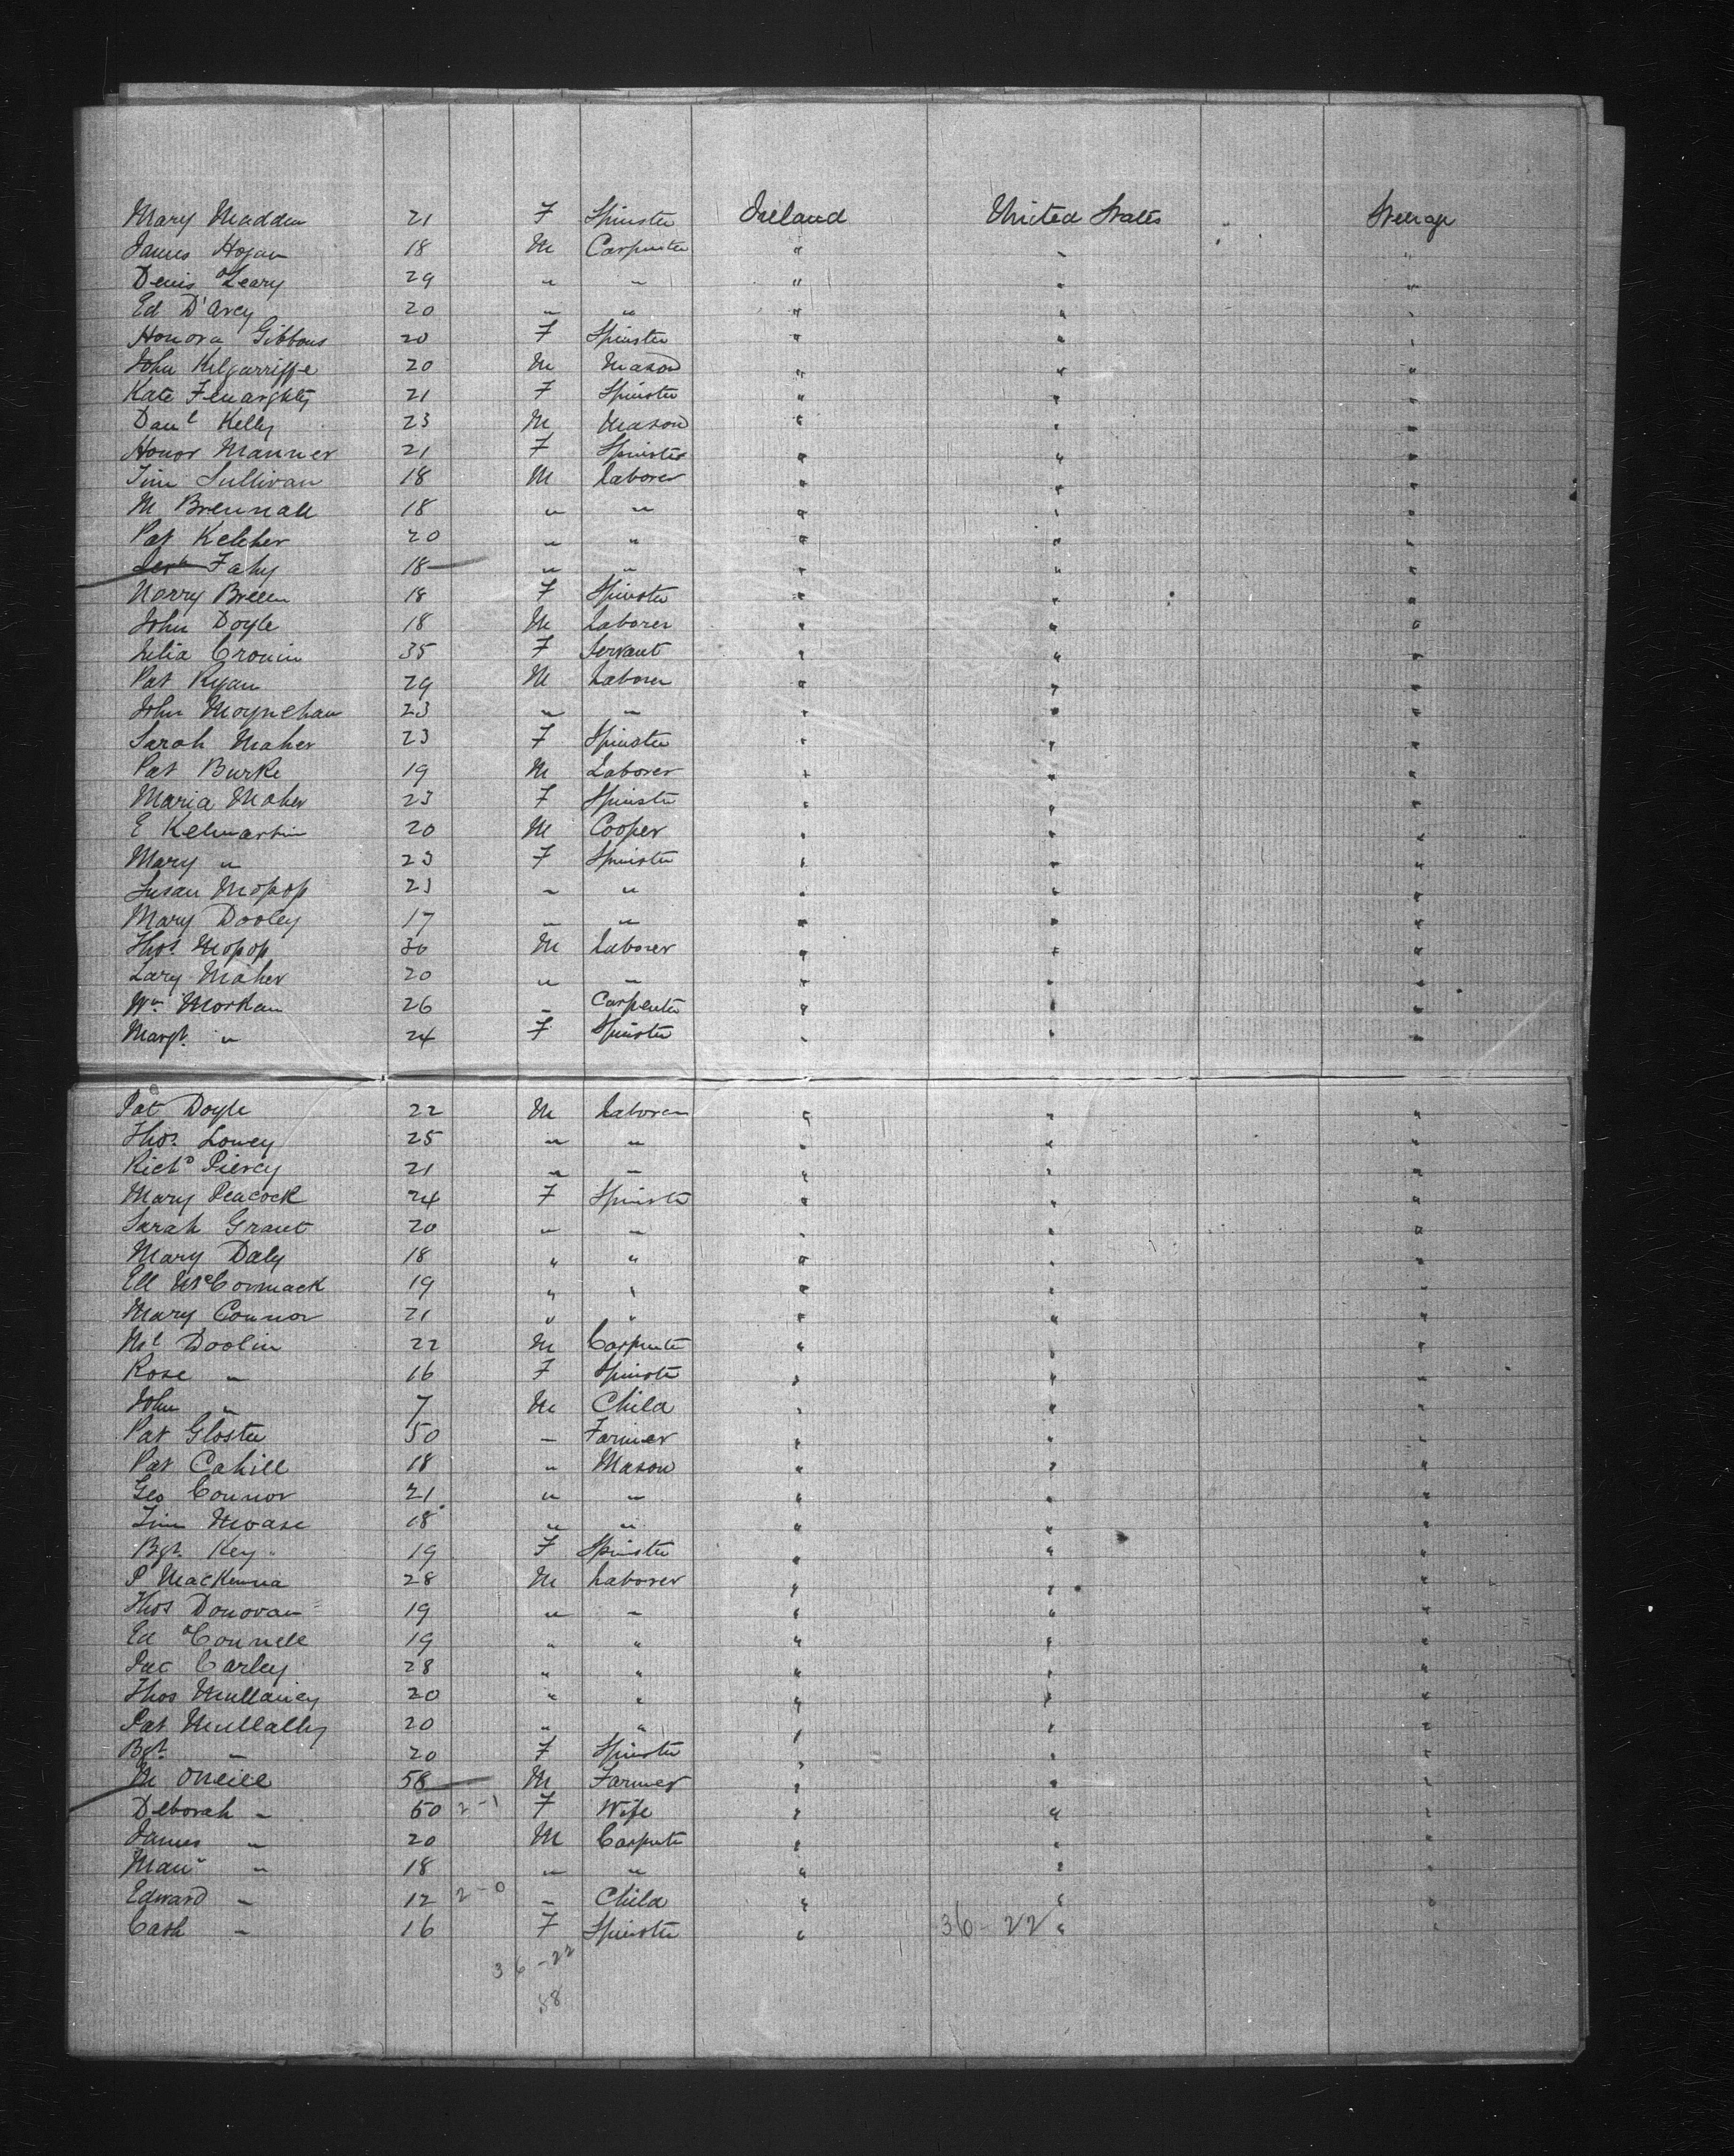 Mary Madden 21 F Spinster Ireland United States Steerage
James Hogan 18 M Carpenter " " "
Denis O'Leary 29 " " " " "
Ed D'Arcy 20 " " " " "
Honora Gibbons 20 F Spinster " " "
John Kilgarriffe 20 M Mason " " "
Kate Fenarghty 21 F Spinster " " "
Danl Kelly 23 M Mason " " "
Honor Manner 21 F Spinster " " "
Tim Sullivan 18 M Laborer " " "
M Brennall 18 " " " " "
Pat Keleher 20 " " " " "
Fahy 18 " " " " "
Norry Breen 18 F Spinster " " "
John Doyle 18 M Laborer " " "
Lelia Cronin 35 F Servant " " "
Pat Ryan 29 M Laborer " " "
John Moynehan 23 " " " " "
Sarah Maher 23 F Spinster " " "
Pat Burke 19 M Laborer " " "
Maria Maher 23 F Spinster " " "
E Kelmartin 20 M Cooper " " "
Mary " 23 F Spinster " " "
Susan Mopop 23 " " " " "
Mary Dooley 17 " " " " "
Thos Mopop 30 M Laborer " " "
Lary Maher 20 " " " " "
Wm Morkan 26 " Carpenter " " "
Margt " 24 F Spinster " " "
Pat Doyle 22 M Laborer " " "
Thos Lowey 25 " " " " "
Richd Piercy 21 " " " " "
Mary Peacock 24 F Spinster " " "
Sarah Grant 20 " " " " "
Mary Daly 18 " " " " "
Ell McCormack 19 " " " " "
Mary Connor 21 " " " " "
Ml Doolin 22 M Carpenter " " "
Rose " 16 F Spinster " " "
John " 7 M Child " " "
Pat Gloster 50 " Farmer " " "
Pat Cahill 18 " Mason " " "
Geo Connor 21 " " " " "
Tim Mvase 18 " " " " "
Bgt Key 19 F Spinster " " "
P MacKenna 28 M Laborer " " "
Thos Donovan 19 " " " " "
Ed O'Connell 19 " " " " "
Pat Carley 28 " " " " "
Thos Mullaney 20 " " " " "
Pat Mullally 20 " " " " "
Bgt " 20 F Spinster " " "
M ONeill 58 M Farmer " " "
Deborah " 50 2-1 F Wife " " "
James " 20 M Carpenter " " "
Mau " 18 " " " " "
Edward " 12 2-0 " Child " " "
Cath " 16 F Spinster " 36-22 " "
36-22
58